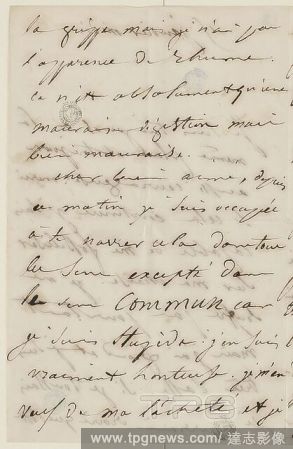 la grippe mais je n'ai pas
l'apparence de rhume.
ce n'est absolument qu'une
mauvaise digestion mais
bien mauvaise.
cher bien aimé, depuis
ce matin je suis occupée
à te navrer cela dans tous
les sens excepté dans
le sens commun car
je suis stupide. j'en suis
vraiment honteuse. je m'en
veux de ma lâcheté et je
www.tpgnews.com 達志影像